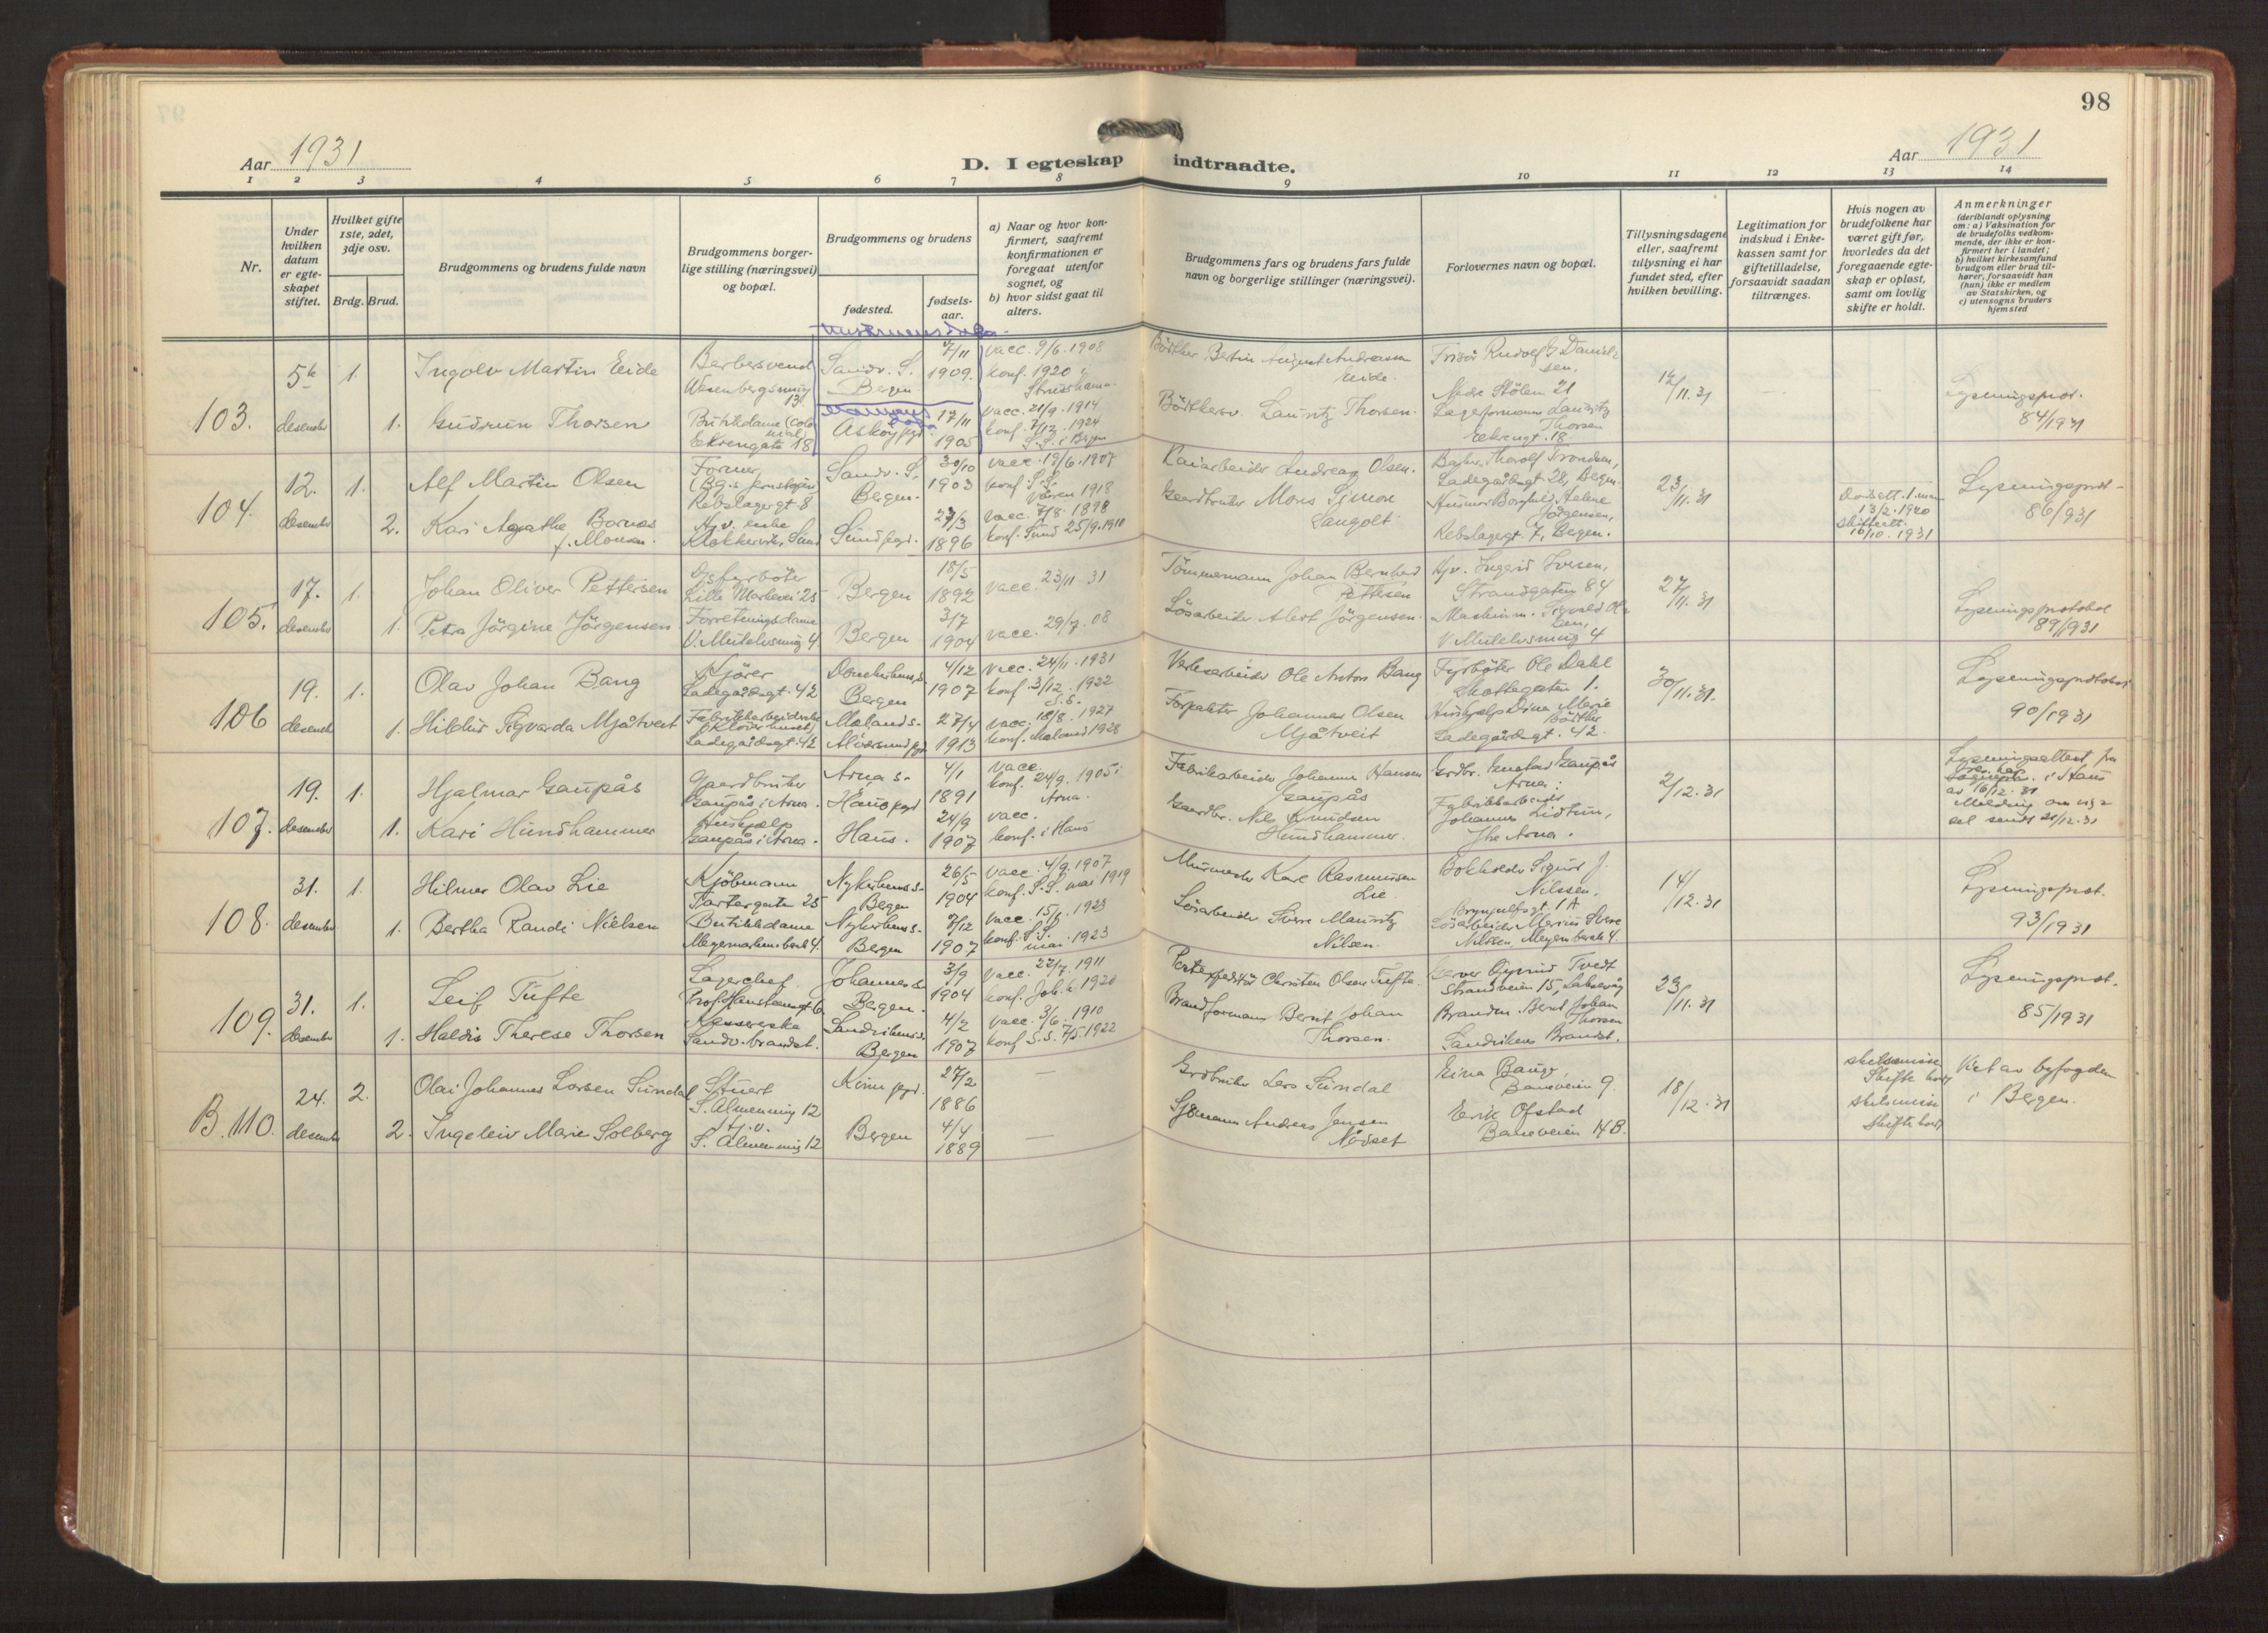 98
Aar 1931
D. I egteskap indtraadte.
Aar 1931
1 2 3 4 5 6 7 8 9 10 11 12 13 14
Nr.
Under hvilken datum er egte-skapet stiftet.
Hvilket gifte 1ste, 2det, 3dje osv.
Brdg. Brud.
Brudgommens og brudens fulde navn
Brudgommens borger-lige stilling (næringsvei) og bopæl.
Brudgommens og brudens
fødested.
fødsels-aar.
a) Naar og hvor kon-firmert, saafremt konfirmationen er foregaat utenfor sognet, og
b) hvor sidst gaat til alters.
Brudgommens fars og brudens fars fulde navn og borgerlige stillinger (næringsvei).
Forlovernes navn og bopæl.
Tillysningsdagene eller, saafremt tillysning ei har fundet sted, efter hvilken bevilling.
Legitimation for indskud i Enke-kassen samt for giftetilladelse, forsaavidt saadan tiltrænges.
Hvis nogen av brudefolkene har været gift før, hvorledes da det foregaaende egte-skap er opløst, samt om lovlig skifte er holdt.
Anmerkninger
(deriblandt oplysning om: a) Vaksination for de brudefolks vedkom-mende, der ikke er kon-firmert her i landet; b) hvilket kirkesamfund brudgom eller brud til-hører, forsaavidt han (hun) ikke er medlem av Statskirken, og c) utensogns bruders hjemsted
103. 5te desember
1. Ingolv Martin Eide
Barbersvend
13
Sandv. S.
Bergen
7/11 1909.
vacc. 9/6. 1908
konf. 1920
Bödtker Bertin August Andreassen
Eide.
Frisör Rudolf G Daniel-
sen,
Nedre Stölen 21
12/11.31
Lysningsprot.
84/1931
1. Gudrun Thorsen
Butikkdame (Colo
nial)
Ekrengate 18
Askøy pgd.
17/11 1905
vacc. 21/9. 1914
konf. 7/12. 1924
S.S. i Bergen
Bödtkersv. Lauritz Thorsen.
Lagerformann Lauritz
Thorsen
Ekrengt. 18.
104. 12. desember
1. Alf Martin Olsen
Former
Rebslagergt 8
Sandv. S.
Bergen.
30/10 1903
vacc. 19/6. 1907
konf. S.S.
våren 1918
Kaiarbeider Andreas Olsen.
Thorolf Trondsen,
Ladegårdsgt 28, Bergen
23/11.31
Lysningsprot-
86/931
2. Kari Agathe Børnes
f. Monsen.
Hj.v. enke
Sund
Sund pgd.
27/3 1896
vacc. 7/8. 1898
konf. Sund 25/9.1910
Gaardbruker Mons Simon
Langolt.
Jørgensen,
Rebslagergt. 7, Bergen.
13/2. 1920
skifteatt.
10/10. 1931
105. 17. desember
1. Johan Oliver Pettersen
Lille Markevei 25
Bergen
18/5 1892
vacc. 23/11-31
Tömmermann Johan Bernhard
Pettersen
Hj.v. Ingerid Iversen,
Strandgaten 84
27/11.31
Lysningsprotokol
89/1931
1. Petra Jörgine Jörgensen
Forretningsdame
V. Mulelvsmug 4.
Bergen
3/7 1904
vacc. 29/7. 08
Lösarbeider Albert Jörgensen.
Maskinm. Sigvald Ol-
sen,
V. Mulelvsmug 4
106 19. desember
1. Olav Johan Bang
Kjörer
Ladegårdsgt. 42
Domkirkens s.
Bergen
4/12 1907
vacc. 24/11. 1931
konf. 3/12. 1922
S.S.
Verksarbeider Ole Anton Bang
Fyrböter Ole Dahl
Skottegaten 1.
30/11.31.
Lysningsprotokol
90/1931
1. Hildur Sigvarda Mjåtveit
Fabrikkarbeiderske
Ladegårdsgt. 42
Mælands-
Alversund pgd.
27/4 1913
vacc. 18/8. 1927
konf. Mæland 1928
Forpakter Johannes Olsen
Mjåtveit
Hushjælp Dina Marie
Bödtker
Ladegårdsgt. 42.
107. 19. desember
1. Hjalmar Gaupås
Gaardbruker
Gaupås i Arna.
Arna s.
Haus pgd
4/1 1891
vacc.
konf. 24/9. 1905 i
Arna.
Fabrikarbeider Johannes Hansen
Gaupås
Grdbr. Gustav Gaupås
Arna;
2/12.31
Lysningsattest fra
i Haus
av 16/12.31
Melding om vig-
sel sendt 21/12.31
1. Kari Hundhammer
Hushjælp
Gaupås i Arna.
Haus.
24/9 1907
vacc.
konf. i Haus
Gaardbr. Nils Knudsen
Hundhammer.
Fabrikkarbeider
Johannes Lidtun,
Ytre Arna.
108. 31. desember
1. Hilmer Olav Lie
Kjöbmann
Tartargaten 25
Nykirkens s.
Bergen
26/5 1904
vacc. 4/9. 1907
konf. S.S. mai 1919
Murmester Karl Rasmussen
Lie.
Bokholder Sigurd J.
Nilssen,
Brynjulfsgt. 1A
14/12.31
Lysningsprot.
93/1931
1. Bertha Randi Nielsen
Butikkdame
Nykirkens s.
Bergen
7/12 1907
konf. S.S.
mai. 1923
Lösarbeider Sverre Mauritz
Nilsen.
Lösarbeider Marius Sverre
Nilssen, 
109. 31. desember
1. Leif Tufte
Lagerchef
Johannes s.
Bergen.
3/9 1904
vacc. 22/7. 1911
konf. Joh. k 1920
Postexpeditör Christen Olsen Tufte.
Tvedt
Strandveien 15, Laksevåg
23/11.31
Lysningsprot.
85/1931
1. Haldis Therese Thorsen
Kassererske
Sandv. brandst.
Sandvikens s.
Bergen
4/2 1907
vacc. 3/6. 1910
konf S.S. 7/5. 1922
Brandformann Bernt Johan
Thorsen.
Brandm. Bernt Johan
Thorsen
Sandvikens Brandst.
B. 110. 24. desember
2. Olai Johannes Larsen Sundal
Stuert
S. Almenning 12
Kinn pgd.
27/2 1886
—
Grdbruker Lars Sundal
Einar Bauge,
Baneveien 9.
18/12.31
skilsmisse
Skifte holdt
Viet av byfogden
i Bergen.
2. Ingeleiv Marie Solberg
Hj.v.
S. Almenning 12
Bergen
4/4 1889
—
Sjømann Anders Jensen
Nödset
Erik Ofstad
Baneveien 14B.
skilsmisse
Skifte holdt